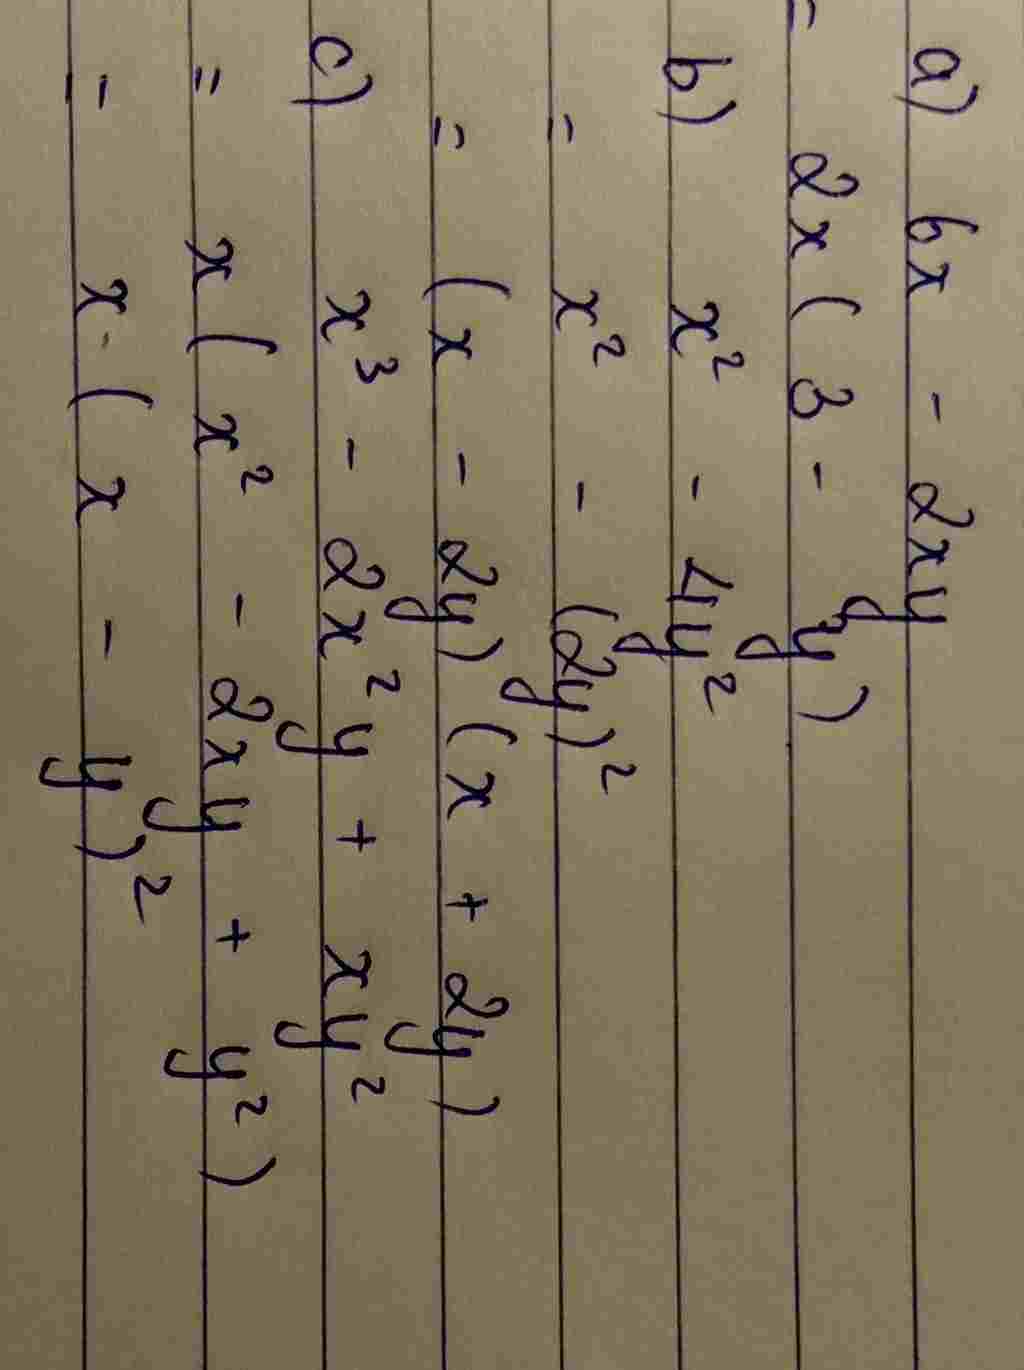 a) 6x - 2xy
= 2x ( 3 - y )
b) x² - 4y²
= x² - (2y)²
= (x - 2y) (x + 2y)
c) x³ - 2x²y + xy²
= x ( x² - 2xy + y² )
= x. ( x - y )²